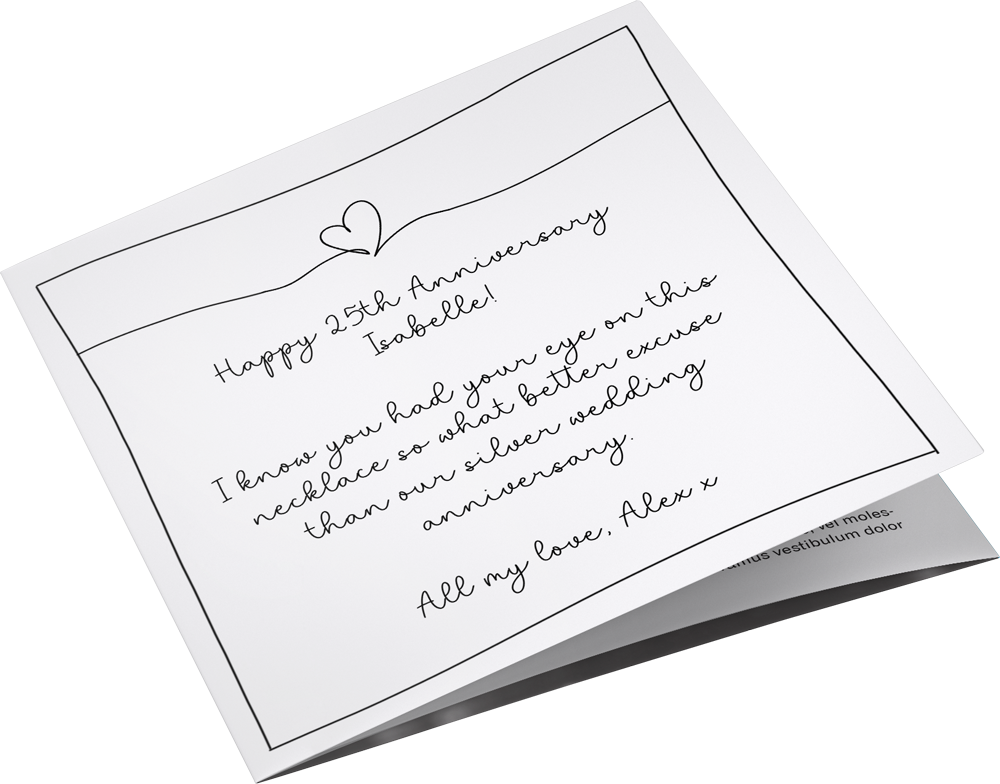 Happy 25th Anniversary
Isabelle!
I know you had your eye on this
necklace so what better excuse
than our silver wedding
anniversary.
All my love, Alex x
vel moles-
vestibulum dolor